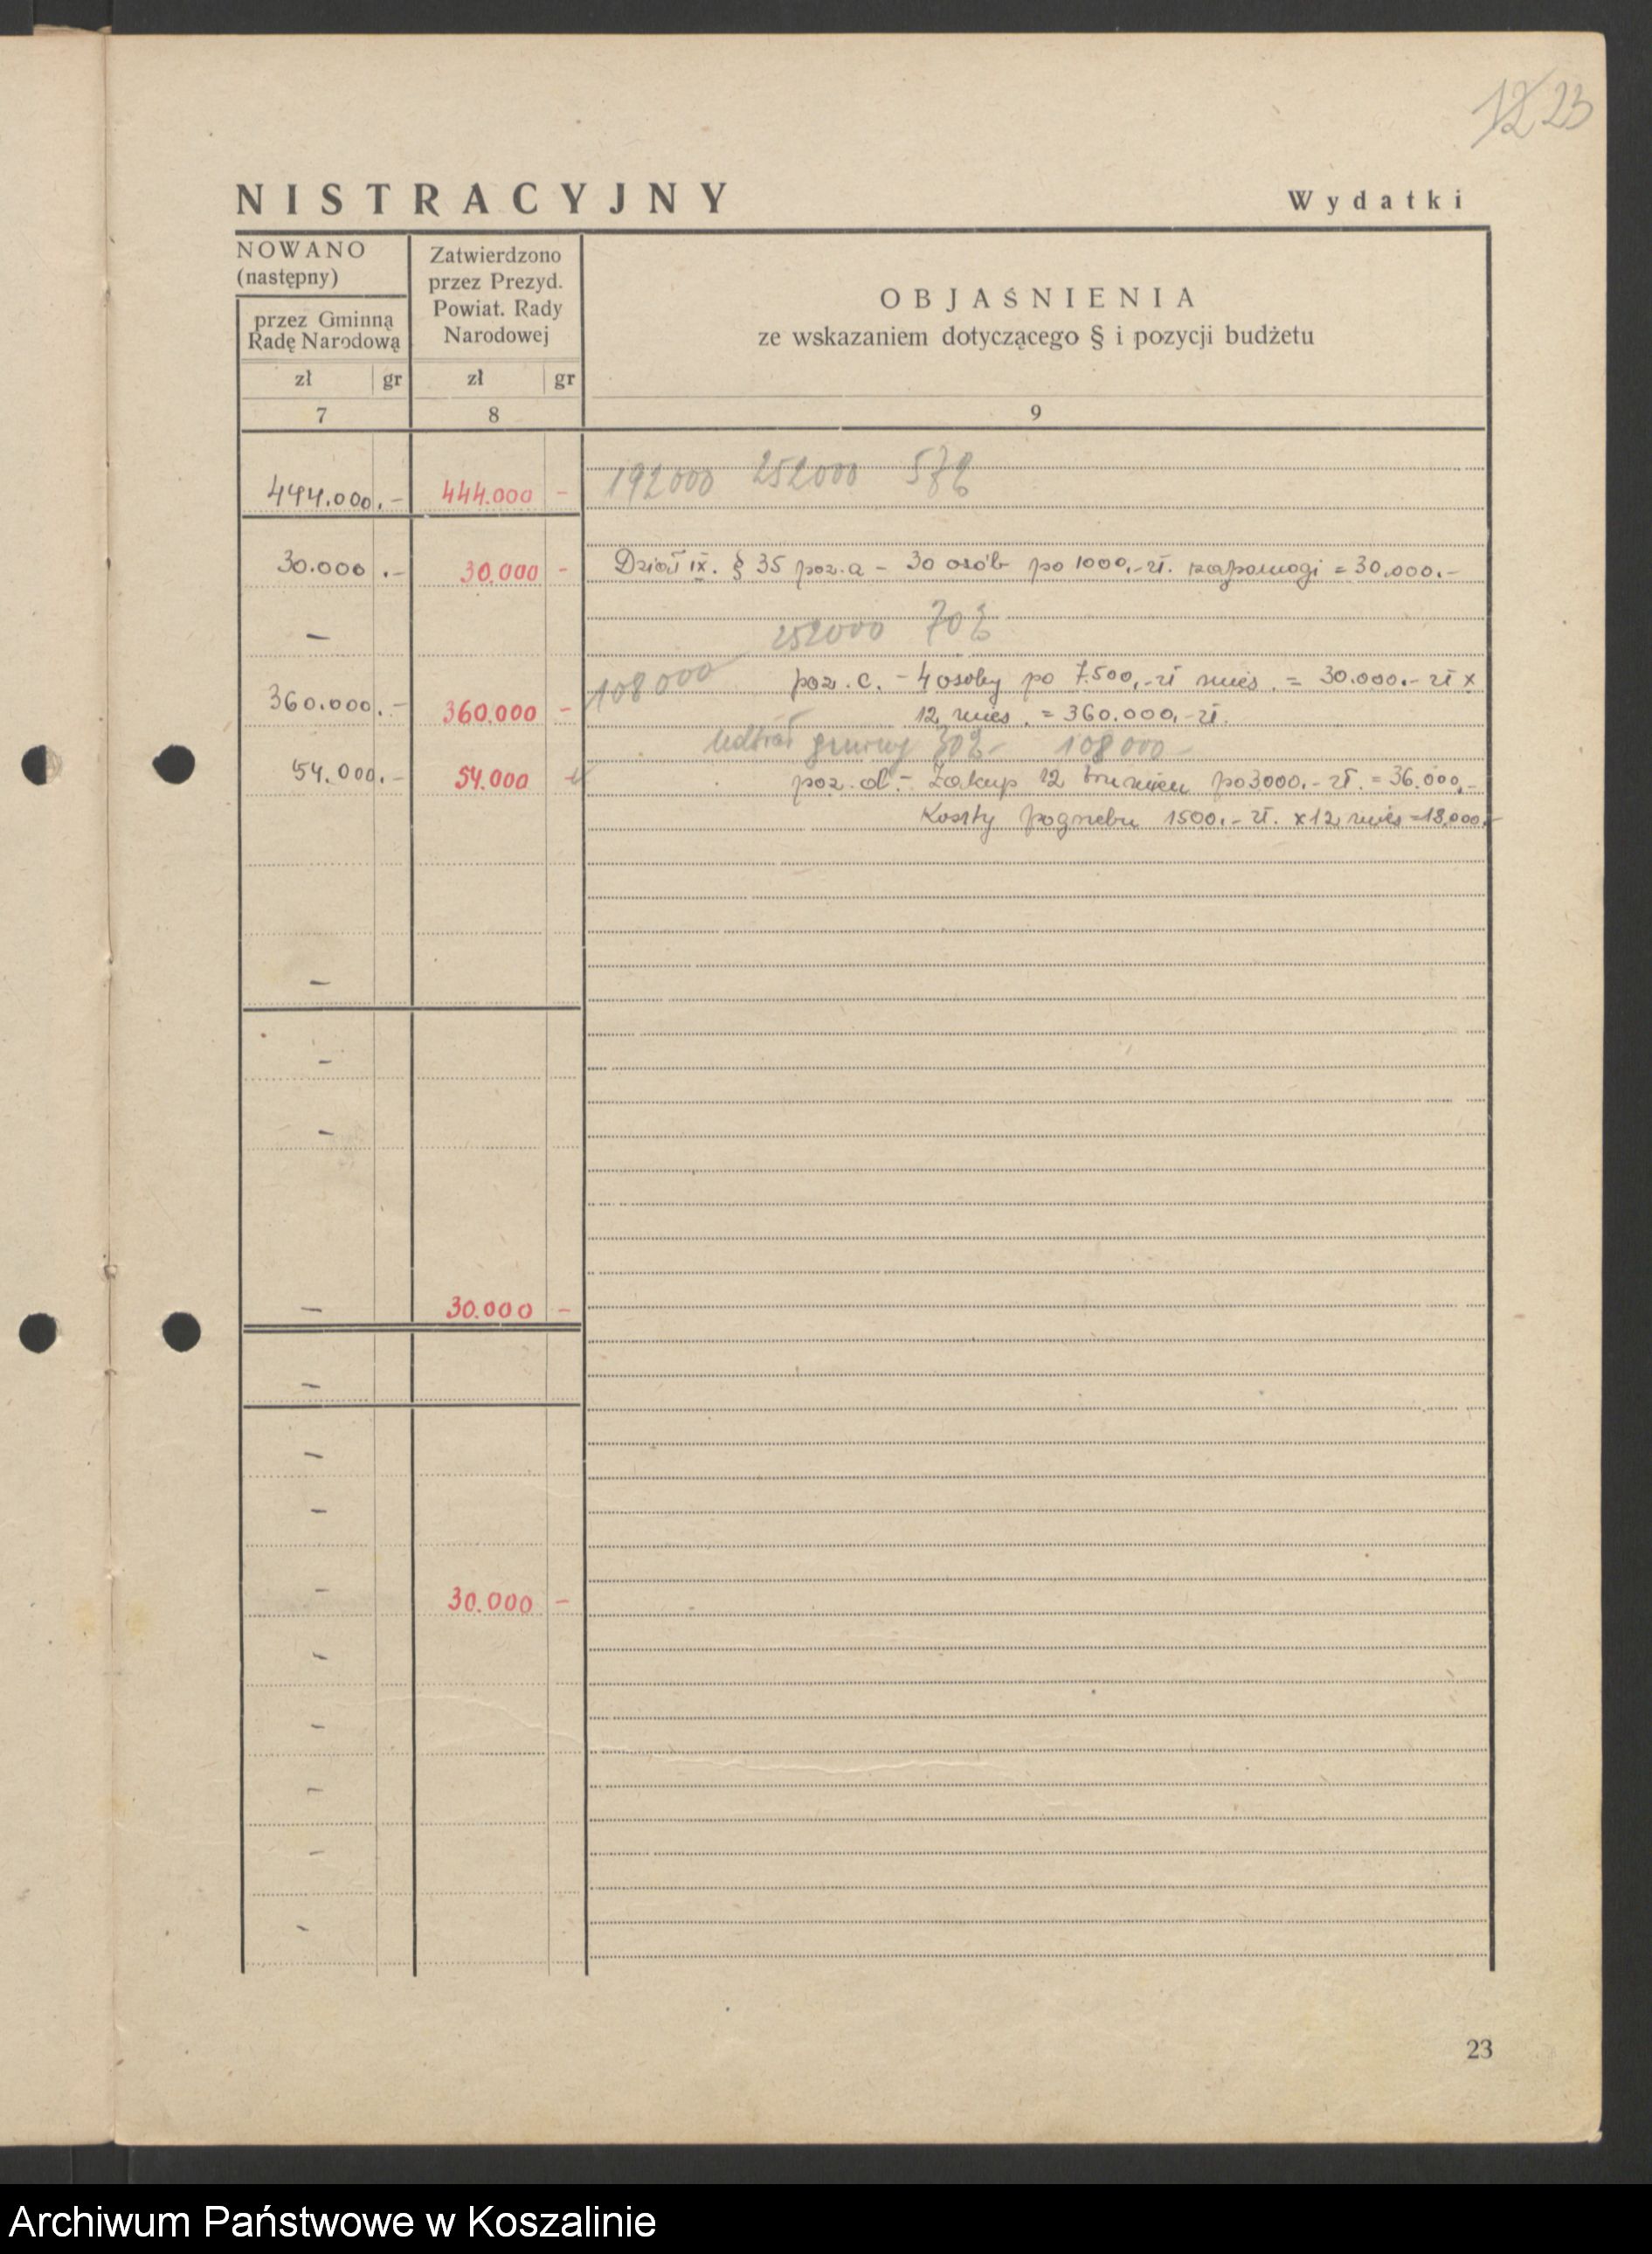 12 23
NISTRACYJNY Wydatki
NOWANO
(następny)
przez Gminną
Radę Narodową
Zatwierdzono
przez Prezyd.
Powiat. Rady
Narodowej
OBJAŚNIENIA
ze wskazaniem dotyczącego § i pozycji budżetu
zł gr zł gr
7 8 9
444.000.- 444.000 - 192000 252000
30.000.- 30.000 - Dział IX. § 35 poz. a - 30 osób po 1000,- zł. zapomogi = 30.000.-
- 252000 70%
108000 poz. c. - 4 osoby po 7.500,- zł mies. = 30.000.- zł x
360.000.- 360.000 - 12 mies. = 360.000,- zł.
Udział gminy 30% - 108000 -
54.000.- 54.000 - poz. d. - Zakup 12 trumien po 3000.- zł. = 36.000,-
Koszty pogrzebu 1500.- zł. x 12 mies = 18.000,-
-
-
-
- 30.000 -
-
-
-
- 30.000 -
-
-
-
-
-
23
Archiwum Państwowe w Koszalinie